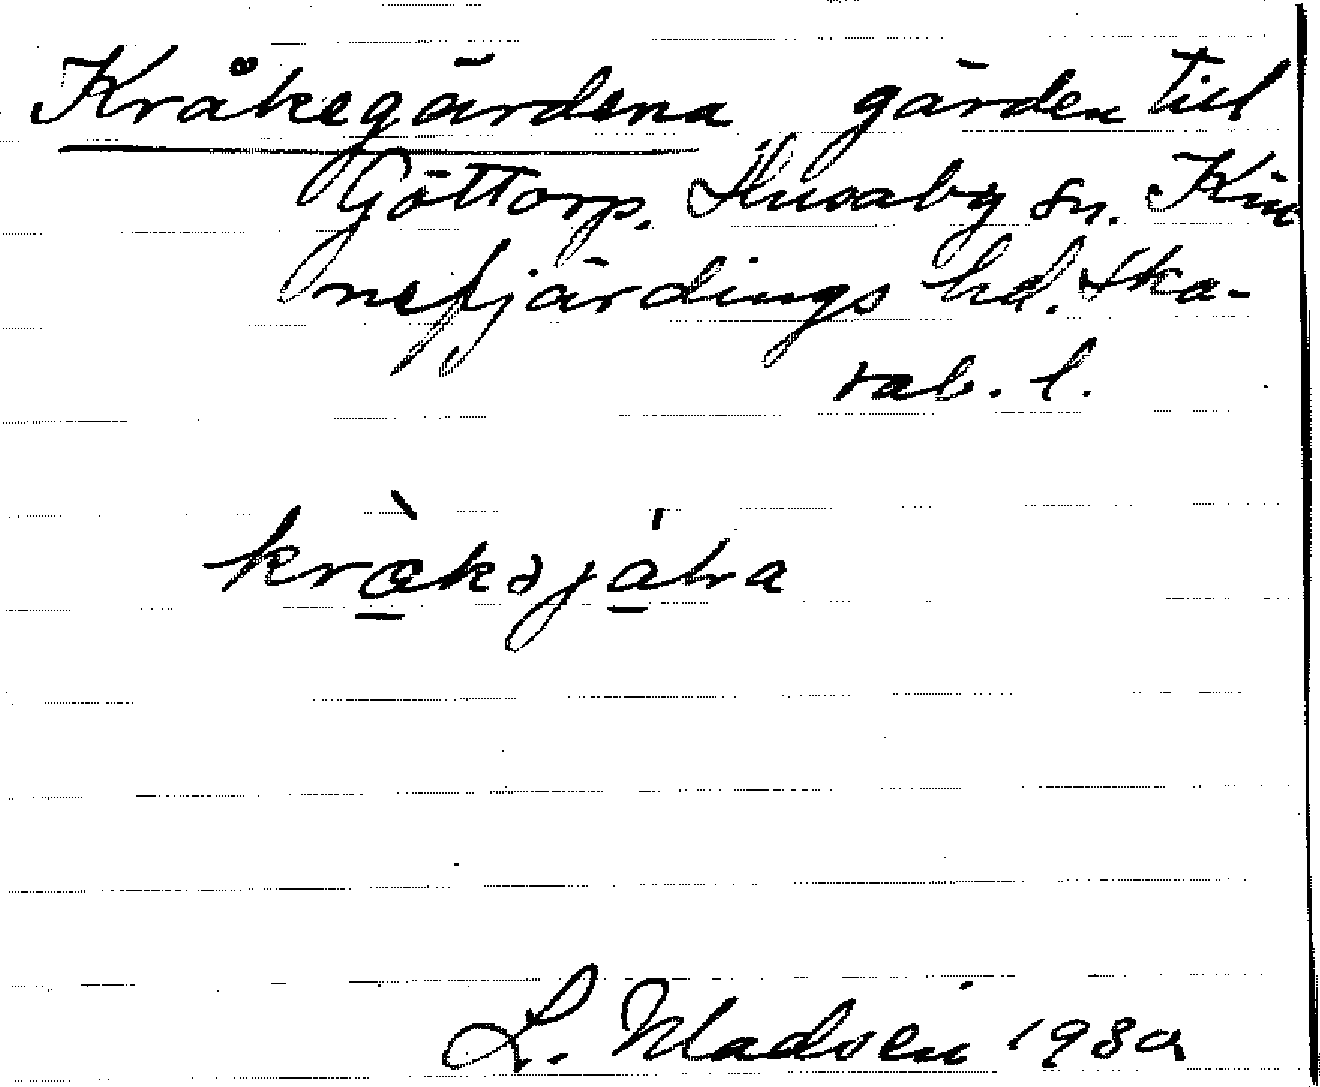 Kråkegärdena gärden till
Göttorp. Husaby sn. Kin
nefjärdings hd. Ska-
rab. l.
kræ̀kəjáɽa
L. Madsén 1930